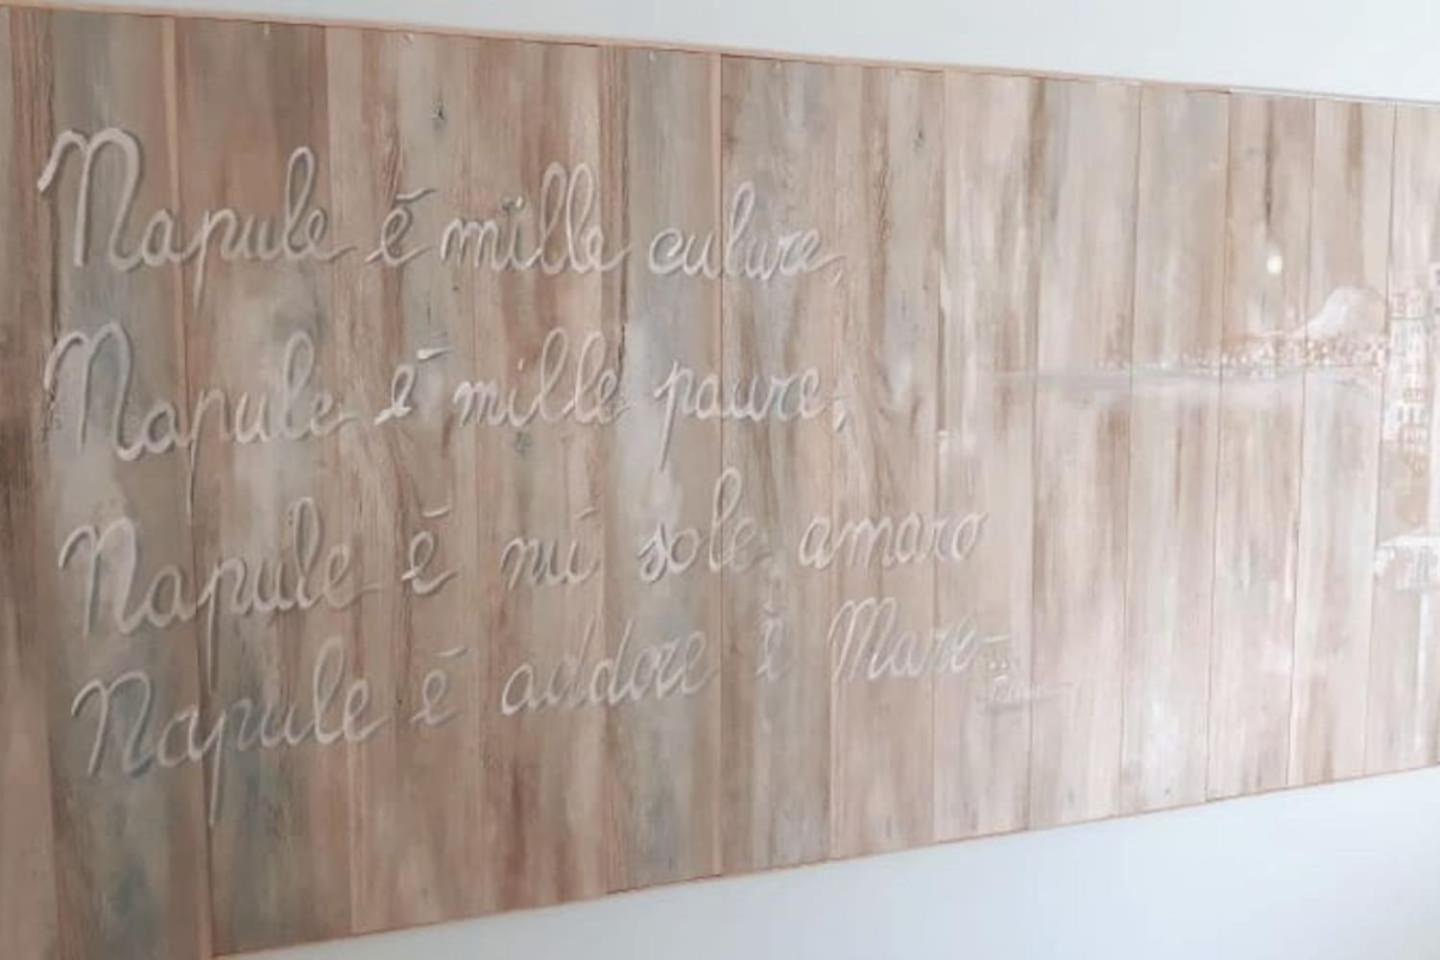 Napule é mille culure,
Napule é mille paure,
Napule é nu sole amaro
Napule é addore é Mare